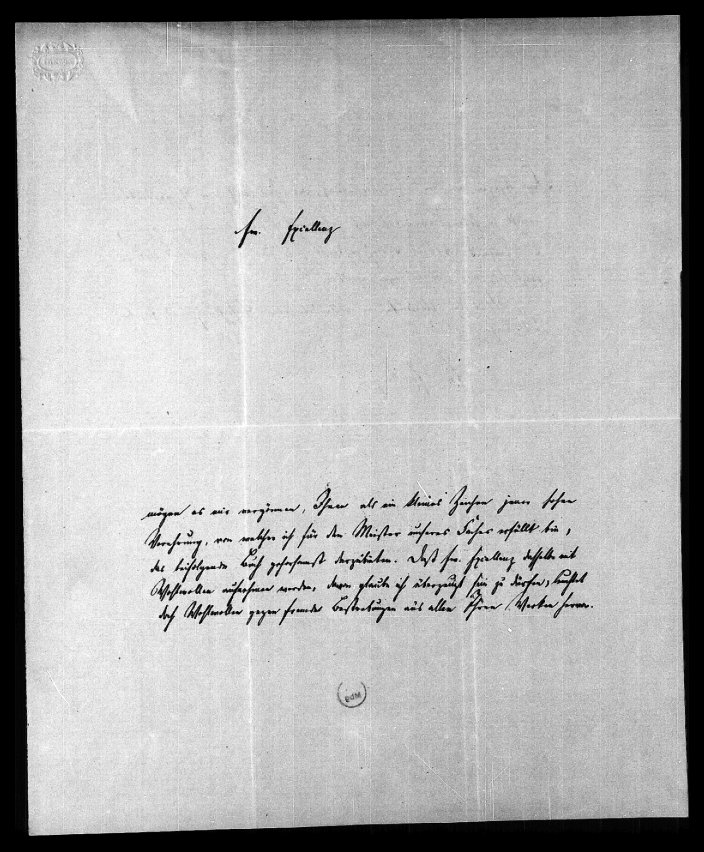 Ew. Excellenz
mögen es mir vergönnen, Ihnen als ein kleines Zeichen jener hohen
Verehrung, von welcher ich für den Meister unseres Faches erfüllt bin,
das beifolgende Buch gehorsamst darzubieten. Daß Ew. Excellenz dasselbe mit
Wohlwollen aufnehmen werden, davon glaube ich überzeugt sein zu dürfen; leuchtet
doch Wohlwollen gegen fremde Bestrebungen aus allen Ihren Werken hervor.
BdM